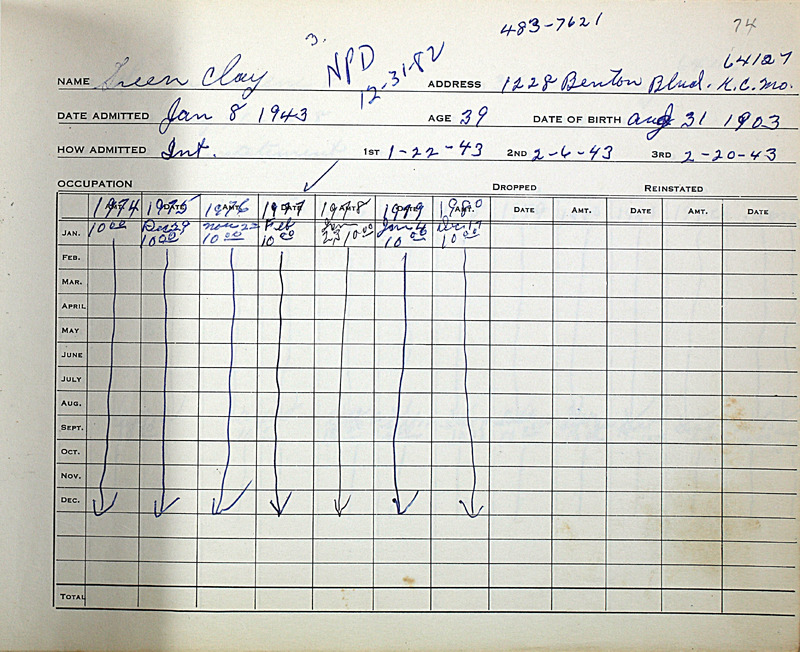 483-7621 74
3.
NPD
12-31-82
64127
NAME Green Clay ADDRESS 1228 Benton Blvd. K.C. Mo.
DATE ADMITTED Jan 8 1943 AGE 39 DATE OF BIRTH Aug 31 1903
HOW ADMITTED Int. 1ST 1-22-43 2ND 2-6-43 3RD 2-20-43
OCCUPATION DROPPED REINSTATED
1974 1975 1976 1977 1978 1979 1980
AMT. DATE AMT. DATE AMT. DATE AMT. DATE AMT. DATE AMT. DATE
JAN. 10 00 Dec 29 10 00 Nov 22 10 00 Feb 10 00 Jan 23 10 00 Jan 4 10 00 Dec 17 10 00
FEB.
MAR.
APRIL
MAY
JUNE
JULY
AUG.
SEPT.
OCT.
NOV.
DEC.
TOTAL